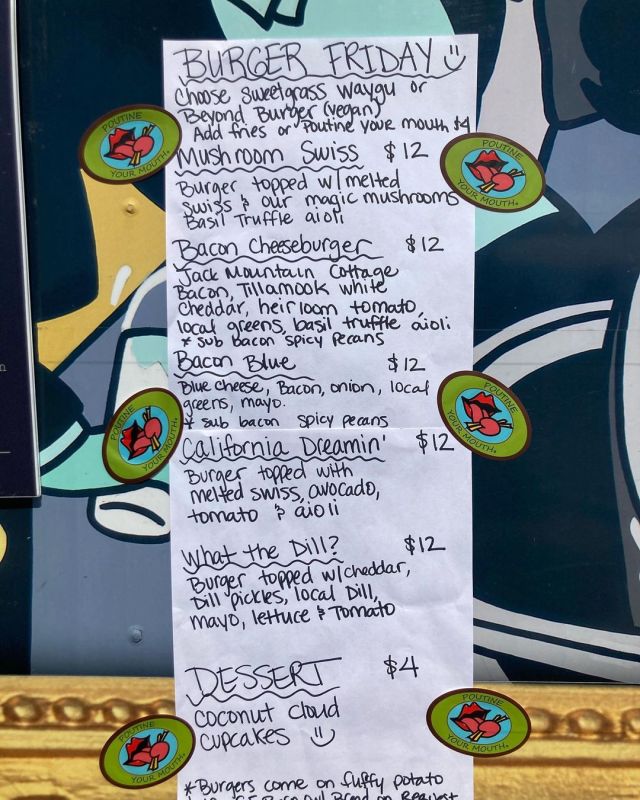 BURGER FRIDAY
Choose Sweetgrass Waygu or
Beyond Burger (vegan)
Add fries or Poutine your mouth $4
Mushroom Swiss $12
Burger topped w/ melted
Swiss & our magic mushrooms
Basil Truffle aioli
Bacon Cheeseburger $12
Jack Mountain Cottage
Bacon, Tillamook white
cheddar, heirloom tomato,
local greens, basil truffle aioli
* sub bacon spicy pecans
Bacon Blue $12
Blue cheese, Bacon, onion, local
greens, mayo.
* sub bacon spicy pecans
California Dreamin' $12
Burger topped with
melted swiss, avocado,
tomato & aioli
What the Dill? $12
Burger topped w/cheddar,
Dill pickles, local Dill,
mayo, lettuce & Tomato
DESSERT $4
coconut cloud
cupcakes
*Burgers come on fluffy potato
Bread on Request
POUTINE
YOUR MOUTH
POUTINE
YOUR MOUTH
POUTINE
YOUR MOUTH
POUTINE
YOUR MOUTH
POUTINE
YOUR MOUTH
POUTINE
YOUR MOUTH